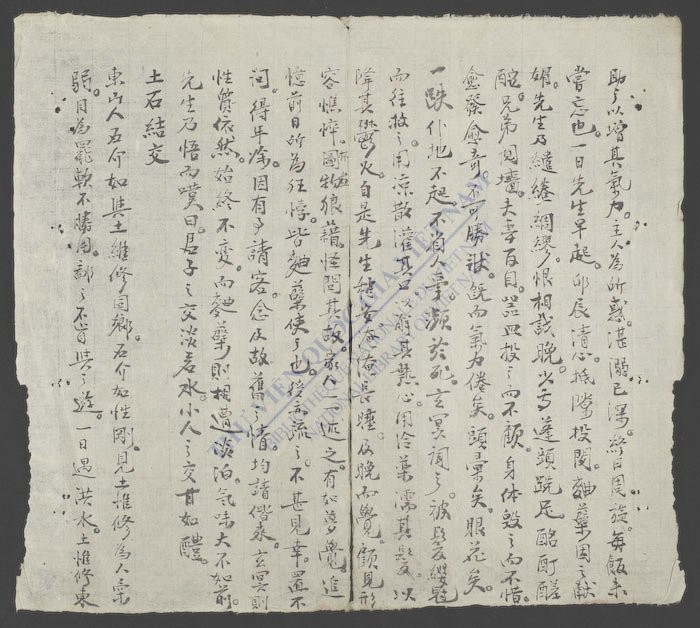 助之以增其氣力主人為所惑湛溺已深終日周旋每飯未
嘗忘也一日先生早起卯辰清心抵隙投閑麯蘗因之献
媚先生乃繾綣綢繆恨相識晚少焉蓬頭跣足酩酊醝
酡兄弟鬩墻夫妻反目器皿投之而不顧身体毁之而不惜
愈發愈奇不可勝狀既而氣力倦矣頭暈矣眼花矣
一跌仆地不起不省人事瀕於死玄冥聞之被髪纓冠
而往救之用凉散灌其口以解其熱心用冷藥濡其髮以
降其鬱火自是先生昏長睡及晚而覺顧見形
容憔悴器物狼藉怪問其故家人一一述之有如夢覺追
憶前日所為狂悖皆麯蘗使之也後疏之不甚見幸置不
问得年餘因有事請客念及故舊情均請偕來玄冥則
性質依然始終不变而麯蘗則相遭淡泊氣味大不如前
先生乃悟而嘆曰君子之交淡若水小人之交甘如醴
土石結交
東山人石介如與土維修同鄉石介如性剛見土惟修為人柔
弱目為罷軟不勝用鄙之不肯與之遊一日遇洪水土惟修東